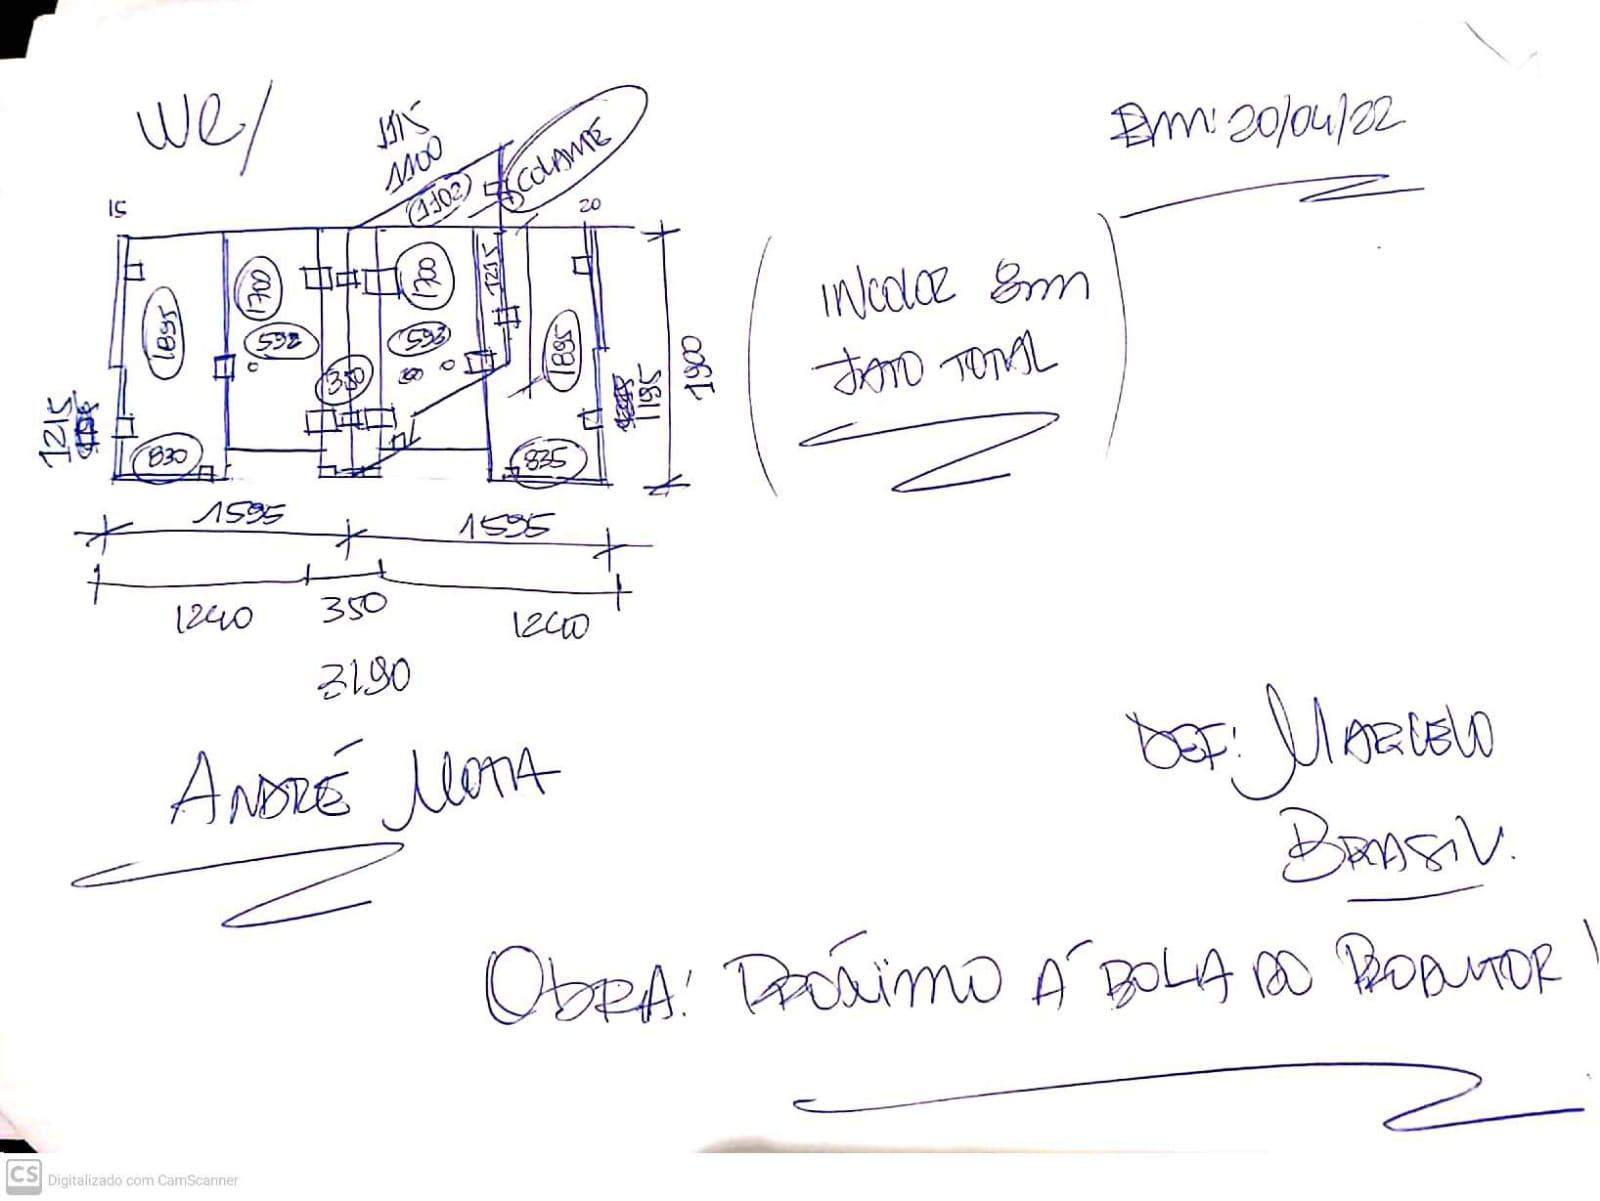 WC/
Em: 20/04/22
1115
1100
1102
COLANTE
15
20
1700
1700
1215
1895
592
592
350
1895
1215
1195
1900
830
835
1595
1595
1240
350
1240
3190
INCOLOR 8mm
JATO TOTAL
ANDRÉ MOTA
REF: MARCELO
BRASIV.
OBRA: PRÓXIMO Á BOLA DO PRODUTOR!
CS Digitalizado com CamScanner